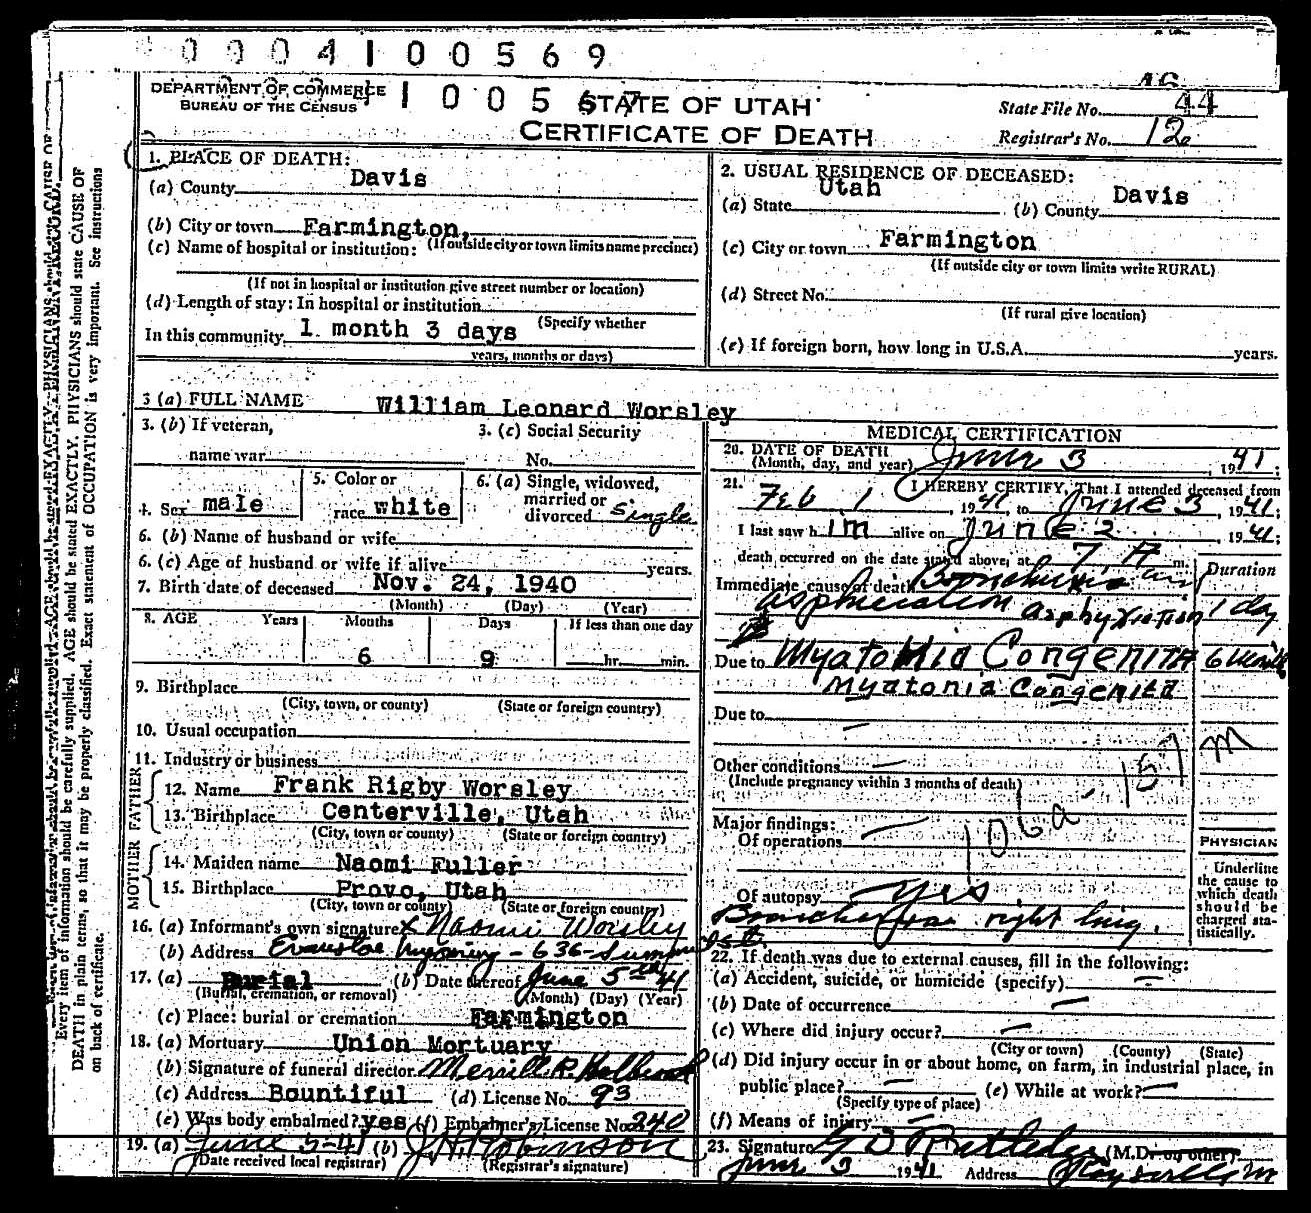 0004100569
100567
DEPARTMENT OF COMMERCE
BUREAU OF THE CENSUS
STATE OF UTAH
CERTIFICATE OF DEATH
State File No. 44
Registrar's No. 12
1. PLACE OF DEATH:
(a) County Davis
(b) City or town Farmington,
(If outside city or town limits name precinct)
(c) Name of hospital or institution:
(If not in hospital or institution give street number or location)
(d) Length of stay: In hospital or institution
(Specify whether
In this community 1 month 3 days
years, months or days)
2. USUAL RESIDENCE OF DECEASED:
(a) State Utah (b) County Davis
(c) City or town Farmington
(If outside city or town limits write RURAL)
(d) Street No.
(If rural give location)
(e) If foreign born, how long in U.S.A. years.
3 (a) FULL NAME William Leonard Worsley
3. (b) If veteran,
name war
3. (c) Social Security
No.
4. Sex male
5. Color or
race white
6. (a) Single, widowed,
married or
divorced Single
6. (b) Name of husband or wife
6. (c) Age of husband or wife if alive years.
7. Birth date of deceased Nov. 24, 1940
(Month) (Day) (Year)
8. AGE Years Months Days If less than one day
6 9 hr. min.
9. Birthplace
(City, town, or county) (State or foreign country)
10. Usual occupation
11. Industry or business
FATHER
12. Name Frank Rigby Worsley
13. Birthplace Centerville, Utah
(City, town or county) (State or foreign country)
MOTHER
14. Maiden name Naomi Fuller
15. Birthplace Provo, Utah
(City, town or county) (State or foreign country)
16. (a) Informant's own signature x Naomi Worsley
(b) Address Evanston Wyoming - 636 - Summit St.
17. (a) Burial (b) Date thereof June 5 41
(Burial, cremation, or removal) (Month) (Day) (Year)
(c) Place: burial or cremation Farmington
18. (a) Mortuary Union Mortuary
(b) Signature of funeral director Merrill R. Holbrook
(c) Address Bountiful (d) License No. 93
(e) Was body embalmed? yes (f) Embalmer's License No. 240
19. (a) June 5-41 (b) J.H. Robinson
(Date received local registrar) (Registrar's signature)
MEDICAL CERTIFICATION
20. DATE OF DEATH
(Month, day, and year) June 3, 1941;
21. I HEREBY CERTIFY, That I attended deceased from
Feb 1, 1941 to June 3, 1941;
I last saw him alive on June 2, 1941;
death occurred on the date stated above, at 7 A m.
Duration
Immediate cause of death
asphyxiation 1 day
Due to Myatonia Congenita 6 months
Myatonia Congenita
Due to
Other conditions
(Include pregnancy within 3 months of death)
106a - 157 m
Major findings:
Of operations
Of autopsy yes
right lung.
PHYSICIAN
Underline
the cause to
which death
should be
charged sta-
tistically.
22. If death was due to external causes, fill in the following:
(a) Accident, suicide, or homicide (specify)
(b) Date of occurrence
(c) Where did injury occur?
(City or town) (County) (State)
(d) Did injury occur in or about home, on farm, in industrial place, in
public place? (e) While at work?
(Specify type of place)
(f) Means of injury
23. Signature G D (M.D. or other).
June 3 1941 Address Kaysville
Every item of information should be carefully supplied. AGE should be stated EXACTLY. PHYSICIANS should state CAUSE OF
DEATH in plain terms, so that it may be properly classified. Exact statement of OCCUPATION is very important. See instructions
on back of certificate.